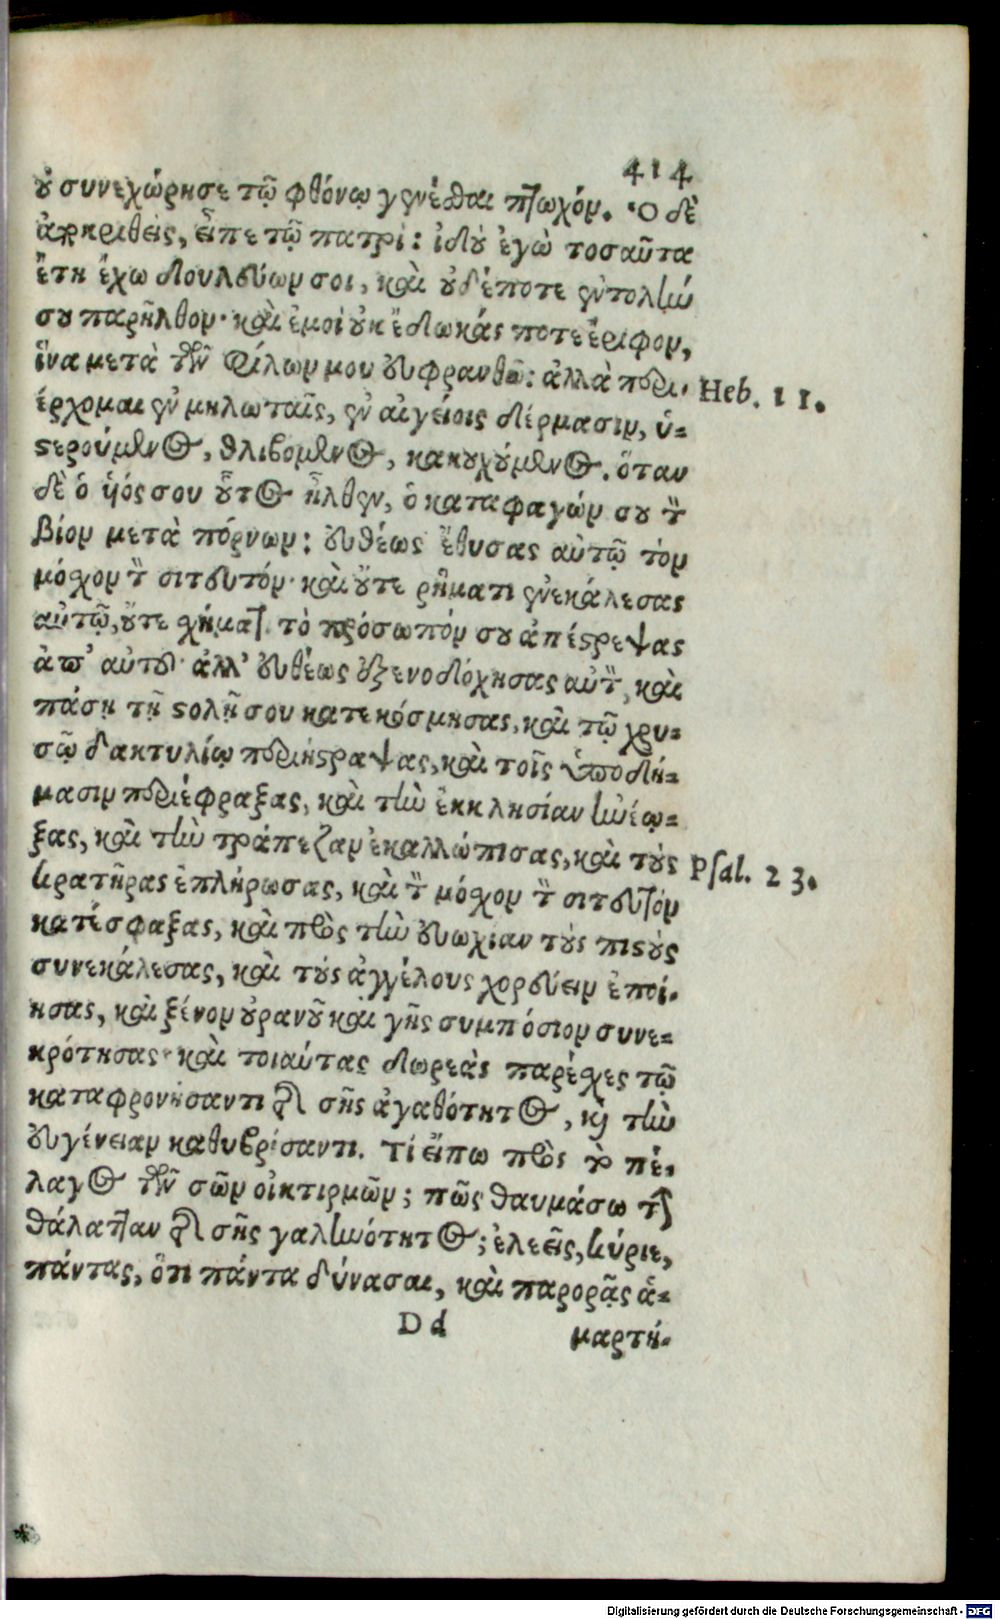 414
οὐ συνεχώρησε τῷ φθόνῳ γενέσθαι πτωχόν. Ὁ δὲ
ἀποκριθεὶς, εἶπε τῷ πατρί: ἰδοὺ ἐγὼ τοσαῦτα
ἔτη ἔχω δουλεύων σοι, καὶ οὐδέποτε ἐντολὴν
σου παρῆλθον· καὶ ἐμοὶ οὐκ ἔδωκάς ποτε ἔριφον,
ἵνα μετὰ τῶν φίλων μου εὐφρανθῶ: ἀλλὰ περι-
έρχομαι ἐν μηλωταῖς, ἐν αἰγείοις δέρμασιν, ὑ-
στερούμενος, θλιβομένος, κακουχούμενος. ὅταν
δὲ ὁ ὑός σου οὗτος ἦλθεν, ὁ καταφαγών σου τὸν
βίον μετὰ πόρνων: εὐθέως ἔθυσας αὐτῷ τὸν
μόσχον τὸν σιτευτόν· καὶ οὔτε ῥήματι ἐνεκάλεσας
αὐτῷ, οὔτε σχήματι τὸ πρόσωπόν σου ἀπέστρεψας
ἀπ' αὐτοῦ· ἀλλ' εὐθέως ἐξενοδόχησας αὐτὸν, καὶ
πάσῃ τῇ στολῇ σου κατεκόσμησας, καὶ τῷ χρυ-
σῷ δακτυλίῳ περιήστραψας, καὶ τοῖς ὑποδή-
μασιν περιέφραξας, καὶ τὴν ἐκκλησίαν ἠνέῳ-
ξας, καὶ τὴν τράπεζαν ἐκαλλώπισας, καὶ τοὺς
κρατῆρας ἐπλήρωσας, καὶ τὸν μόσχον τὸν σιτευτόν
κατέσφαξας, καὶ πρὸς τὴν εὐωχίαν τοὺς πιστοὺς
συνεκάλεσας, καὶ τοὺς ἀγγέλους χορεύειν ἐποί-
ησας, καὶ ξένον οὐρανοῦ καὶ γῆς συμπόσιον συνε-
κρότησας· καὶ τοιαύτας δωρεὰς παρέσχες τῷ
καταφρονήσαντι τῆς σῆς ἀγαθότητος, καὶ τὴν
εὐγένειαν καθυβρίσαντι. Τί εἴπω πρὸς τὸ πέ-
λαγος τῶν σῶν οἰκτιρμῶν; πῶς θαυμάσω τὴν
θάλατταν τῆς σῆς γαληνότητος; ἐλεεῖς, κύριε,
πάντας, ὅτι πάντα δύνασαι, καὶ παρορᾷς ἁ-
Dd
μαρτή-
Heb. 11.
Psal. 23.
Digitalisierung gefördert durch die Deutsche Forschungsgemeinschaft - DFG